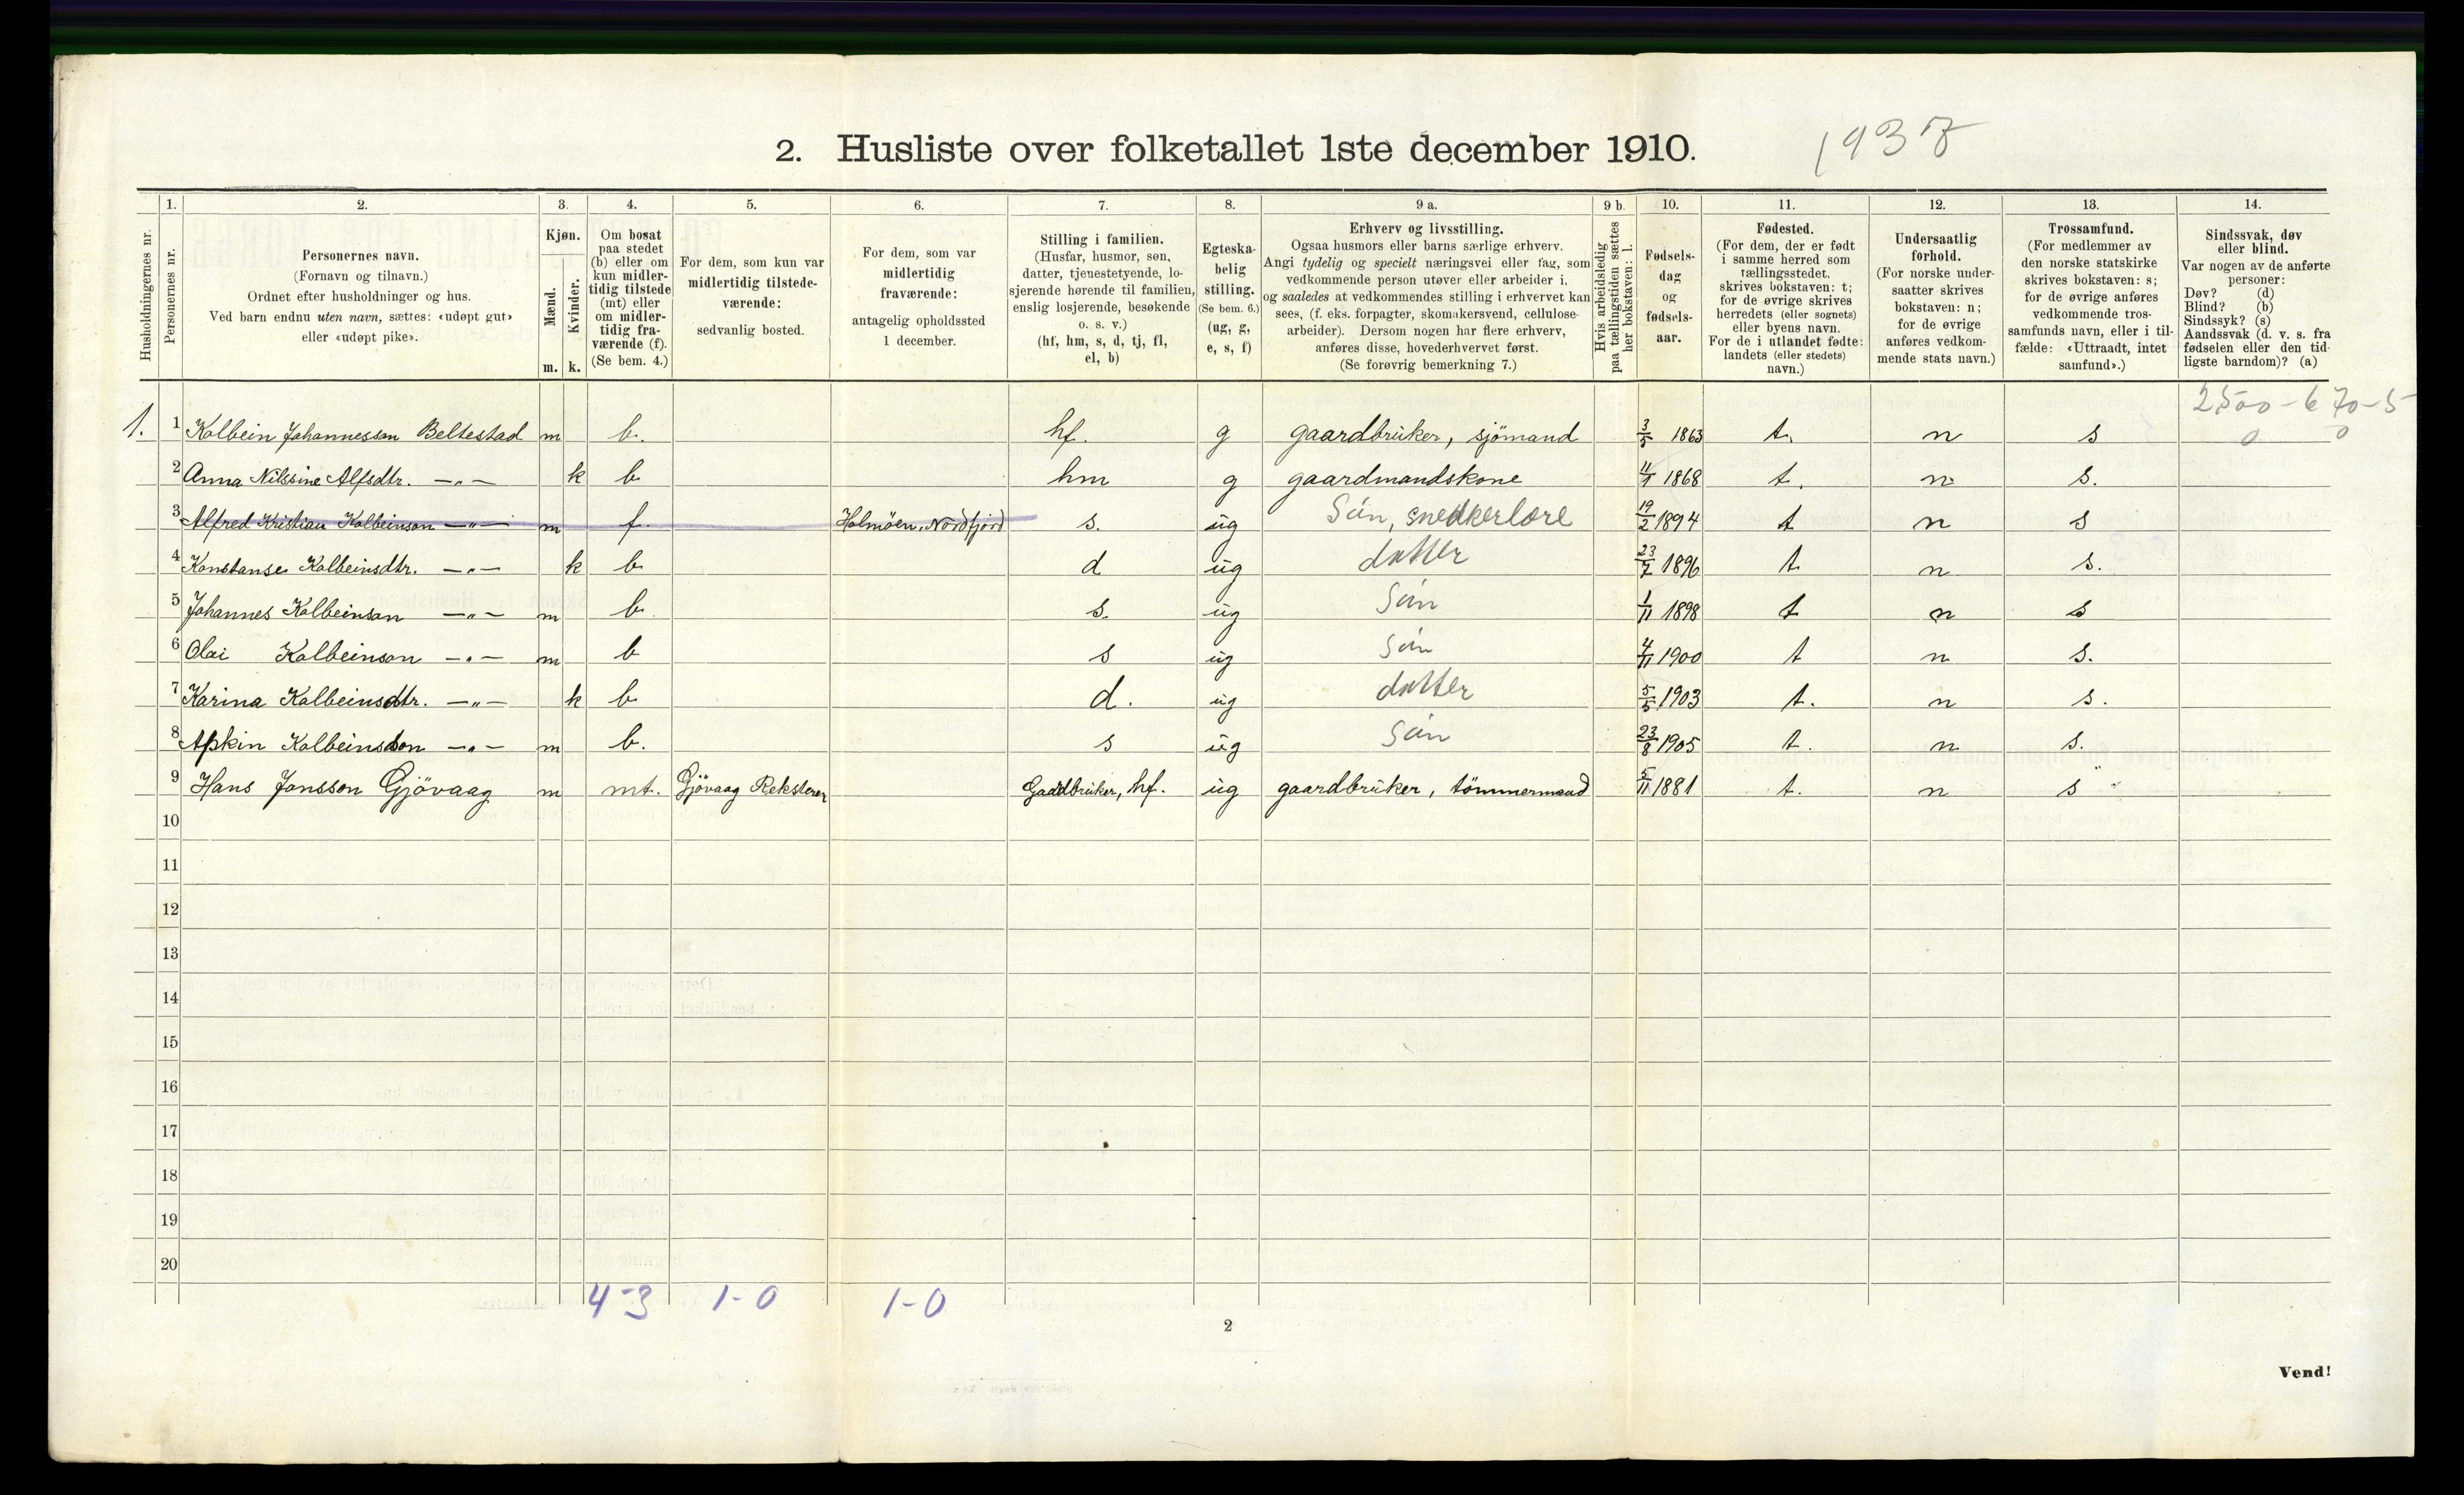 2. Husliste over folketallet 1ste december 1910.
1937
Husholdningernes nr.
1. Personernes nr.
2. Personernes navn.
(Fornavn og tilnavn.)
Ordnet efter husholdninger og hus.
Ved barn endnu uten navn, sættes: «udøpt gut»
eller «udøpt pike».
3. Kjøn.
Mænd. m.
Kvinder. k.
4. Om bosat
paa stedet
(b) eller om
kun midler-
tidig tilstede
(mt) eller
om midler-
tidig fra-
værende (f).
(Se bem. 4.)
5. For dem, som kun var
midlertidig tilstede-
værende:
sedvanlig bosted.
6. For dem, som var
midlertidig
fraværende:
antagelig opholdssted
1 december.
7. Stilling i familien.
(Husfar, husmor, søn,
datter, tjenestetyende, lo-
sjerende hørende til familien,
enslig losjerende, besøkende
o. s. v.)
(hf, hm, s, d, tj, fl,
el, b)
8. Egteska-
belig
stilling.
(Se bem. 6.)
(ug, g,
e, s, f)
9 a. Erhverv og livsstilling.
Ogsaa husmors eller barns særlige erhverv.
Angi tydelig og specielt næringsvei eller fag, som
vedkommende person utøver eller arbeider i,
og saaledes at vedkommendes stilling i erhvervet kan
sees, (f. eks. forpagter, skomakersvend, cellulose-
arbeider). Dersom nogen har flere erhverv,
anføres disse, hovederhvervet først.
(Se forøvrig bemerkning 7.)
9 b. Hvis arbeidsledig
paa tællingstiden sættes
her bokstaven: l.
10. Fødsels-
dag
og
fødsels-
aar.
11. Fødested.
(For dem, der er født
i samme herred som
tællingsstedet,
skrives bokstaven: t;
for de øvrige skrives
herredets (eller sognets)
eller byens navn.
For de i utlandet fødte:
landets (eller stedets)
navn.)
12. Undersaatlig
forhold.
(For norske under-
saatter skrives
bokstaven: n;
for de øvrige
anføres vedkom-
mende stats navn.)
13. Trossamfund.
(For medlemmer av
den norske statskirke
skrives bokstaven: s;
for de øvrige anføres
vedkommende tros-
samfunds navn, eller i til-
fælde: «Uttraadt, intet
samfund».)
14. Sindssvak, døv
eller blind.
Var nogen av de anførte
personer:
Døv? (d)
Blind? (b)
Sindssyk? (s)
Aandssvak (d. v. s. fra
fødselen eller den tid-
ligste barndom)? (a)
2500-670-5
0 0
1. 1 Kolbein Johannesson Beltestad m b. hf. g gaardbruker, sjömand 3/5 1863 t. n s
2 Anna Nilssine Alfsdtr. —"— k b hm g gaardmandskone 1868 t. n s.
3 Alfred Kristian Kolbeinson —"— m f. Holmöen, Nordfjord s. ug Sön, snedkerlære 19/2 1894 t n s
4 Konstanse Kolbeinsdtr. —"— k b d ug datter 23/7 1896 t n s.
5 Johannes Kolbeinson —"— m b. s. ug Sön 1/11 1898 t n s
6 Olai Kolbeinson —"— m b s ug Sön 4/11 1900 t n s.
7 Karina Kolbeinsdtr. —"— k b d. ug datter 5/5 1903 t. n s.
8 Apkin Kolbeinsson —"— m b. s ug Sön 23/8 1905 t. n s.
9 Hans Jonsson Gjövaag m mt. Gjövaag Reksteren Gaardbruker, hf. ug gaardbruker, tömmermand 5/11 1881 t. n s
10
11
12
13
14
15
16
17
18
19
20
4-3 1-0 1-0
2
Vend!